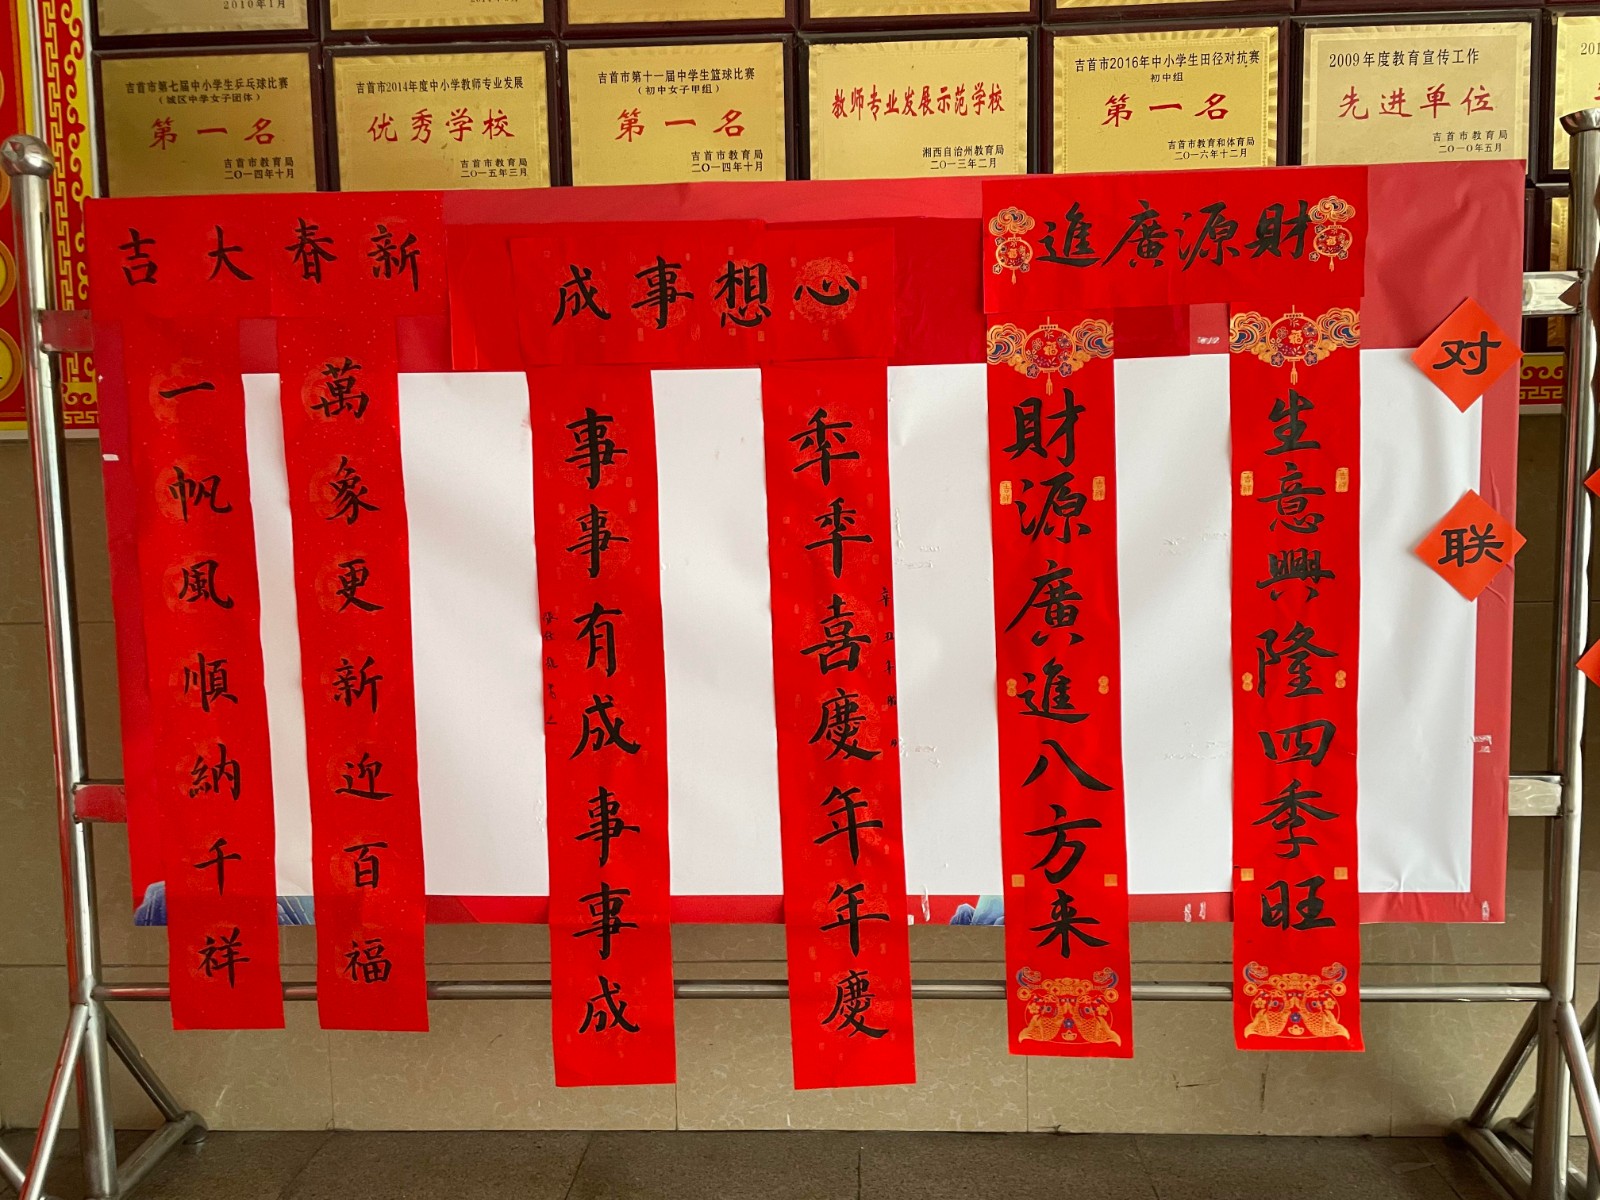 2010年1月
吉首市第七届中小学生乒乓球比赛
（城区中学女子团体）
第一名
吉首市教育局
二〇一四年十月
吉首市2014年度中小学教师专业发展
优秀学校
吉首市教育局
二〇一五年三月
吉首市第十一届中学生篮球比赛
（初中女子甲组）
第一名
吉首市教育局
二〇一四年十月
教师专业发展示范学校
湘西自治州教育局
二〇一三年二月
吉首市2016年中小学生田径对抗赛
初中组
第一名
吉首市教育和体育局
二〇一六年十二月
2009年度教育宣传工作
先进单位
吉首市教育局
二〇一〇年五月
201
新春大吉
萬象更新迎百福
一帆風順納千祥
心想事成
年年喜慶年年慶
事事有成事事成
財源廣進
生意興隆四季旺
財源廣進八方来
对
联